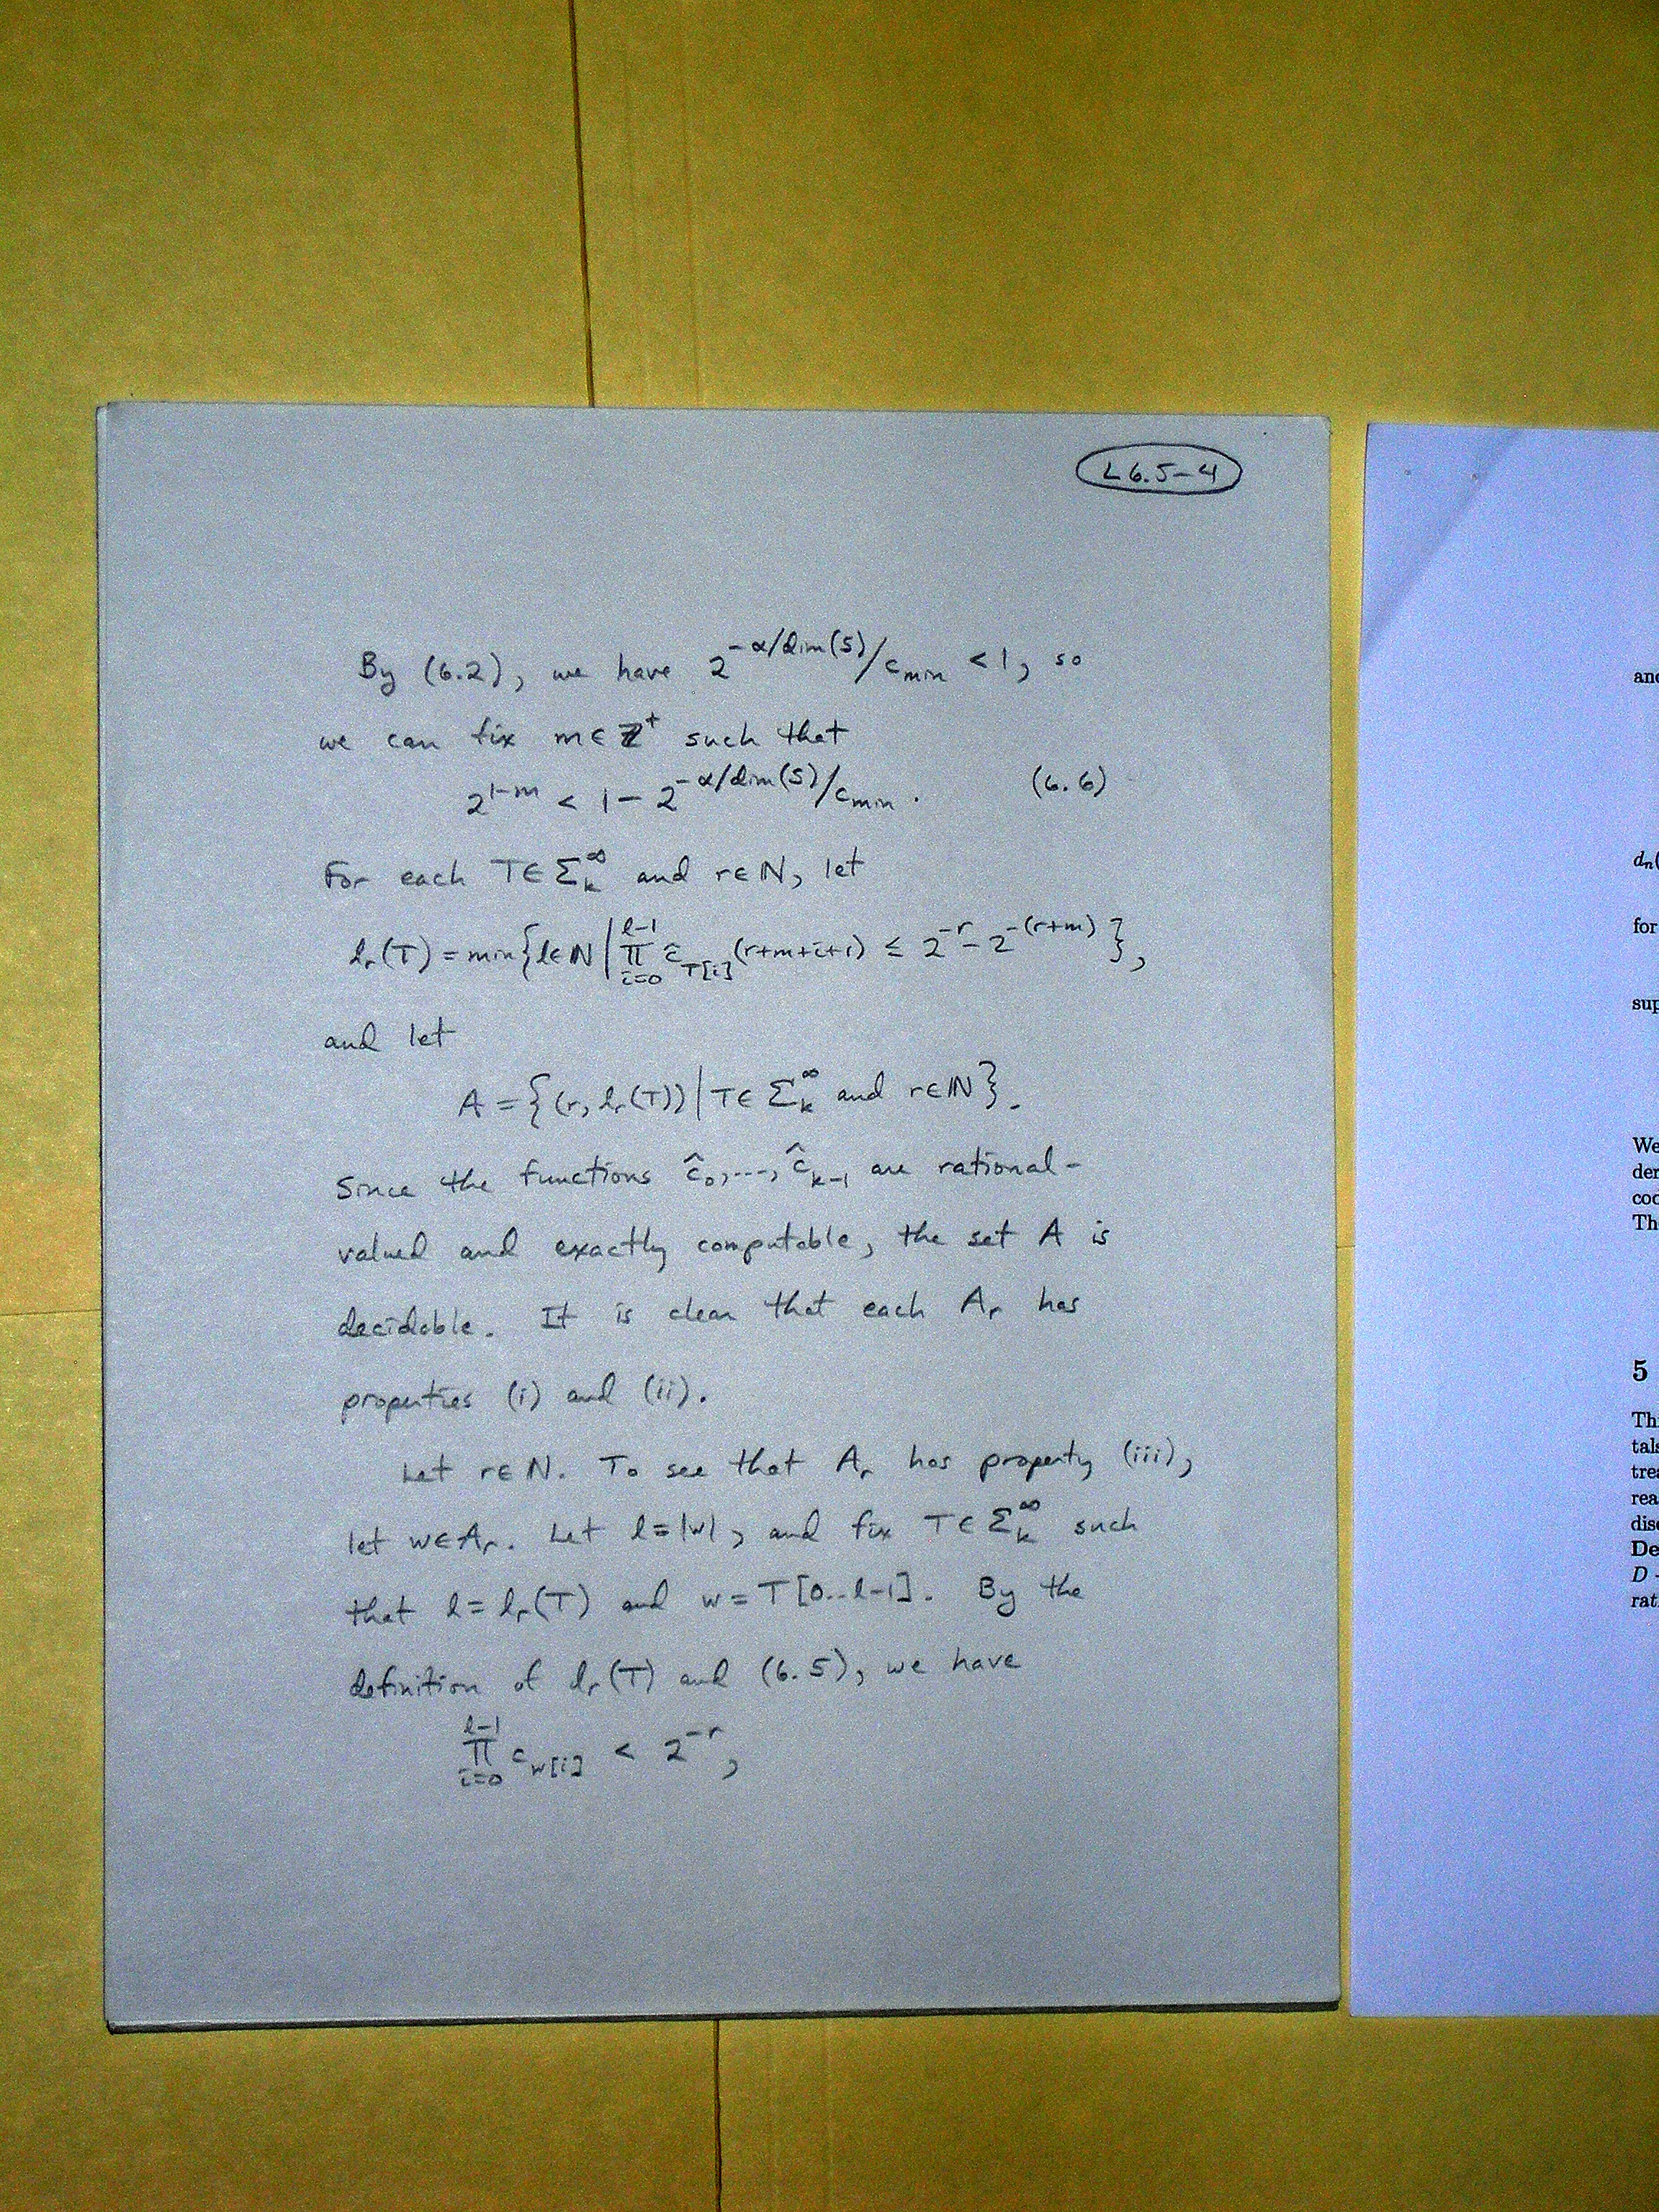 L6.5-4
By (6.2), we have 2^{-α/dim(S)}/c_min < 1, so
we can fix m ∈ ℤ⁺ such that
2^{1-m} < 1 - 2^{-α/dim(S)}/c_min. (6.6)
For each T ∈ Σ_k^∞ and r ∈ ℕ, let
l_r(T) = min{l ∈ ℕ | ∏_{i=0}^{l-1} ĉ_{T[i]}(r+m+i+1) ≤ 2^{-r} - 2^{-(r+m)}},
and let
A = {(r, l_r(T)) | T ∈ Σ_k^∞ and r ∈ ℕ}.
Since the functions ĉ_0, ..., ĉ_{k-1} are rational-
valued and exactly computable, the set A is
decidable. It is clear that each A_r has
properties (i) and (ii).
Let r ∈ ℕ. To see that A_r has property (iii),
let w ∈ A_r. Let l = |w|, and fix T ∈ Σ_k^∞ such
that l = l_r(T) and w = T[0..l-1]. By the
definition of l_r(T) and (6.5), we have
∏_{i=0}^{l-1} c_{w[i]} < 2^{-r},
and
d_n(
for
sup
We
den
cod
Th
5
Thi
tals
trea
rea
disc
De
D -
rat